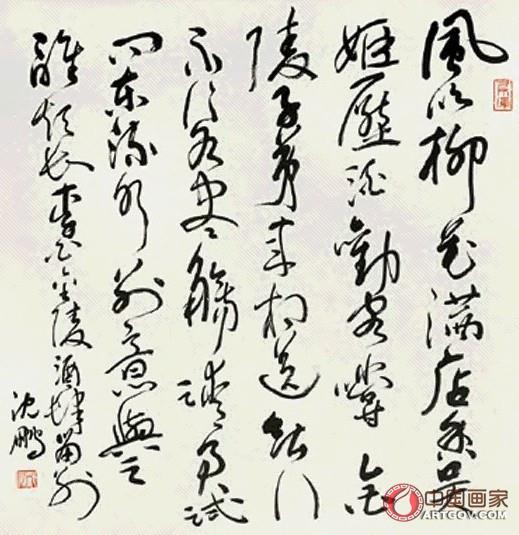 風吹柳花满店香吴
姬壓酒勸客嘗金
陵子弟来相送欲行
不行各尽觴请君试
问东流水别意與之
誰短长李白金陵酒肆留别
沈鹏
中国画家
ARTGOV.COM